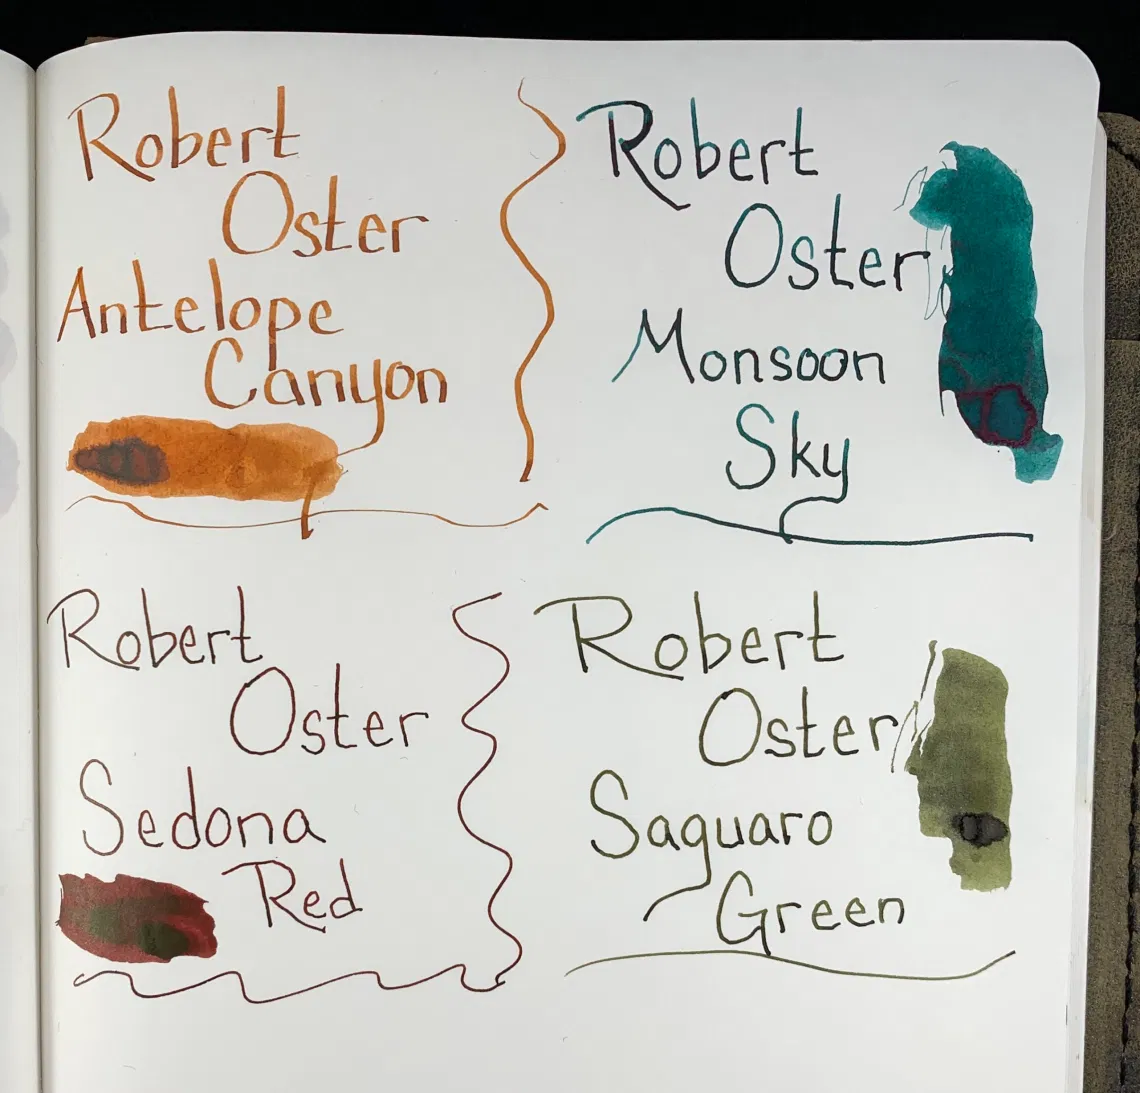 Robert
Oster
Antelope
Canyon
Robert
Oster
Monsoon
Sky
Robert
Oster
Sedona
Red
Robert
Oster
Saguaro
Green